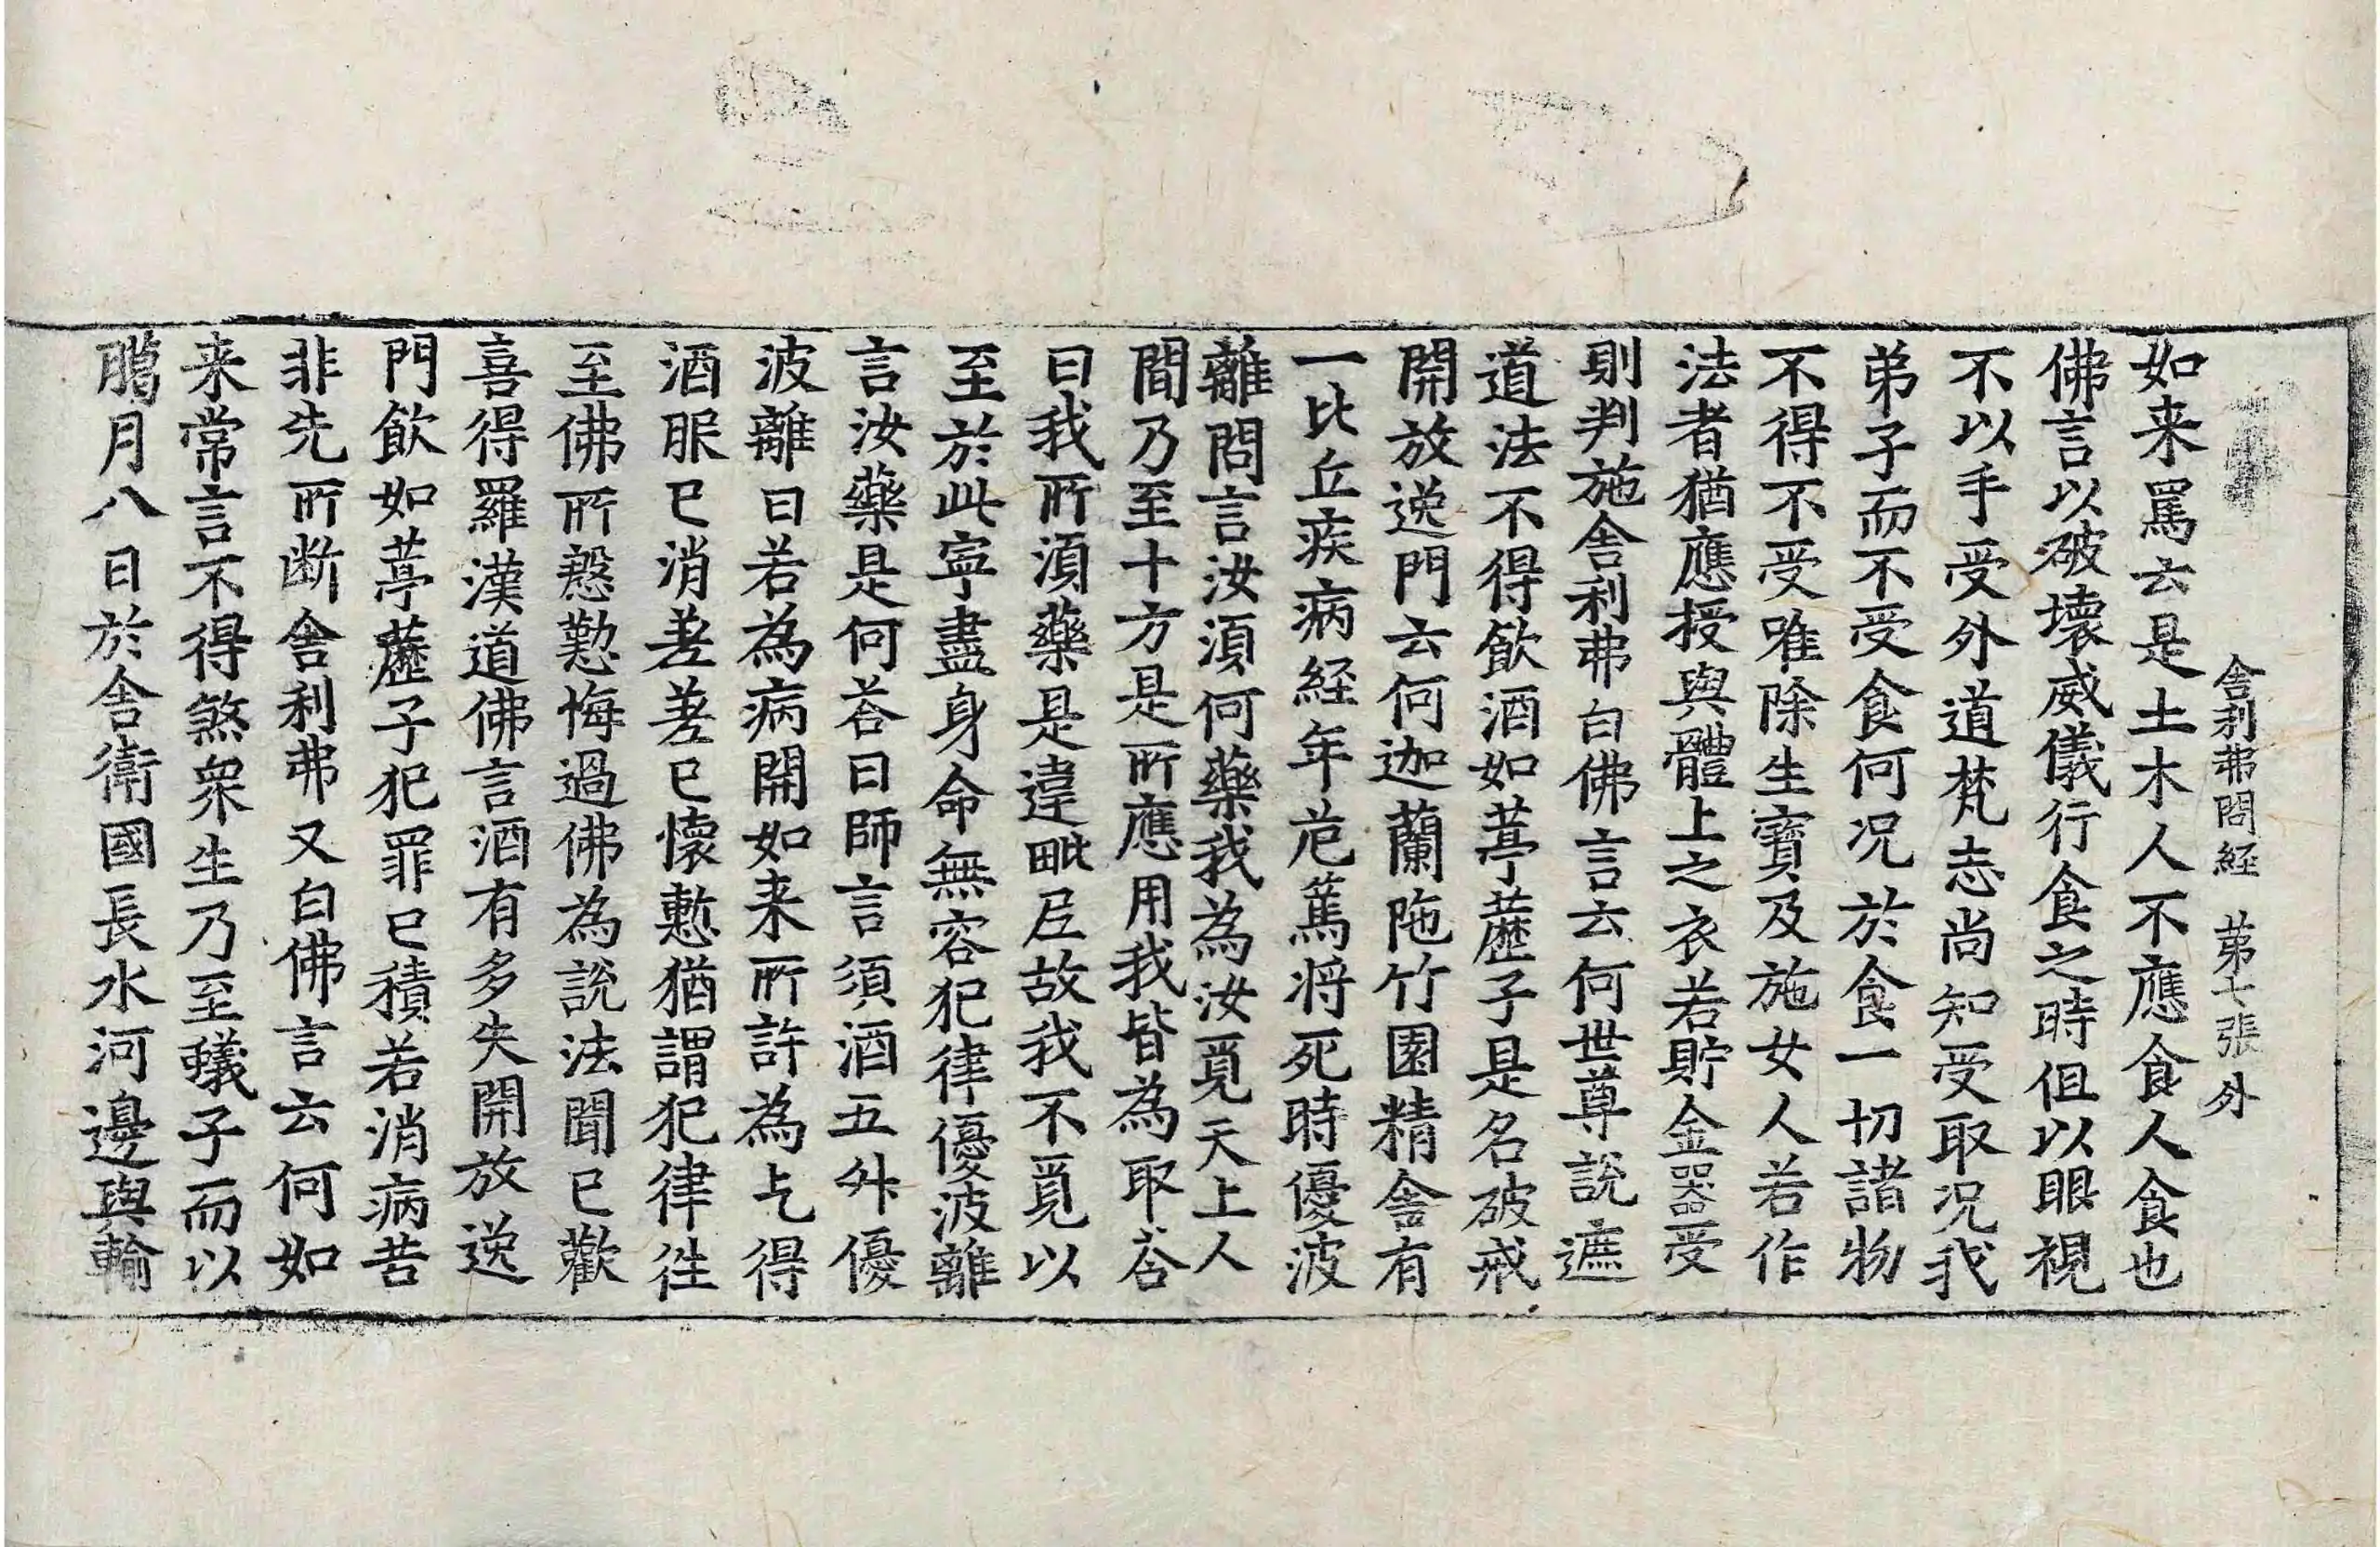 舍利弗問経 第七張 外
如来罵云是土木人不應食人食也
佛言以破壞威儀行食之時但以眼視
不以手受外道梵志尚知受取況我
弟子而不受食何況於食一切諸物
不得不受唯除生寶及施女人若作
法者猶應授與體上之衣若貯金器受
則判施舍利弗白佛言云何世尊說遮
道法不得飲酒如葶藶子是名破戒
開放逸門云何迦蘭陁竹園精舍有
一比丘疾病経年危篤将死時優波
離問言汝湏何藥我為汝覓天上人
間乃至十方是所應用我皆為取荅
曰我所湏藥是違毗尼故我不覓以
至於此寧盡身命無容犯律優波離
言汝藥是何荅曰師言須酒五升優
波離曰若為病開如来所許為乞得
酒服已消差差已懷慙猶謂犯律往
至佛所慇懃悔過佛為說法聞已歡
喜得羅漢道佛言酒有多失開放逸
門飲如葶藶子犯罪已積若消病苦
非先所断舍利弗又白佛言云何如
来常言不得煞衆生乃至蟻子而以
臈月八日於舍衛國長水河邊與輸